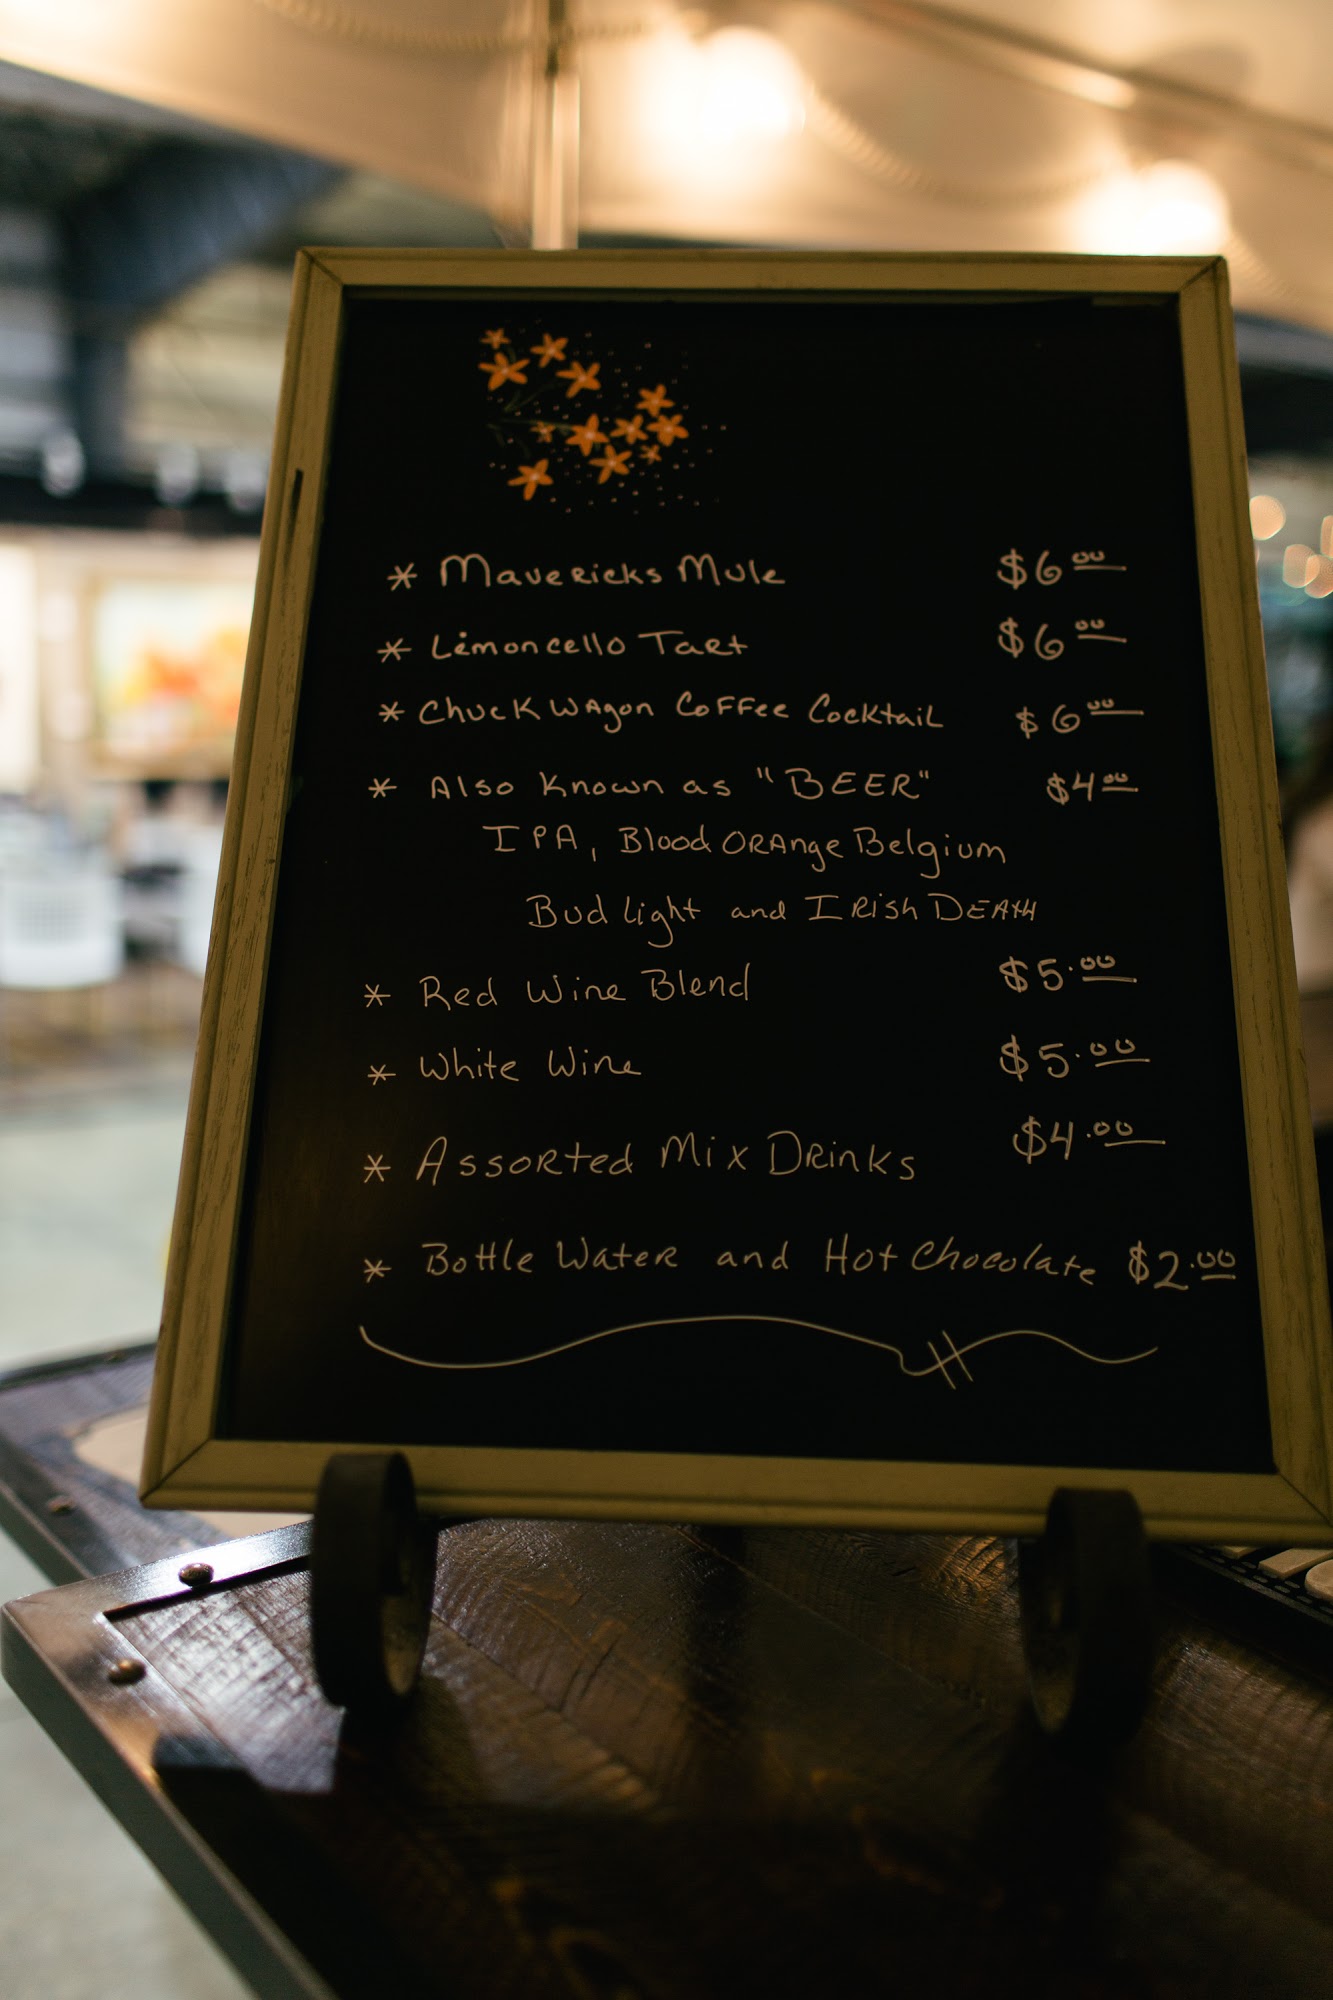 * Mavericks Mule $6.00
* Limoncello Tart $6.00
* Chuck Wagon Coffee Cocktail $6.00
* Also Known as "BEER" $4.00
IPA, Blood Orange Belgium
Bud Light and Irish Death
* Red Wine Blend $5.00
* White Wine $5.00
* Assorted Mix Drinks $4.00
* Bottle Water and Hot Chocolate $2.00